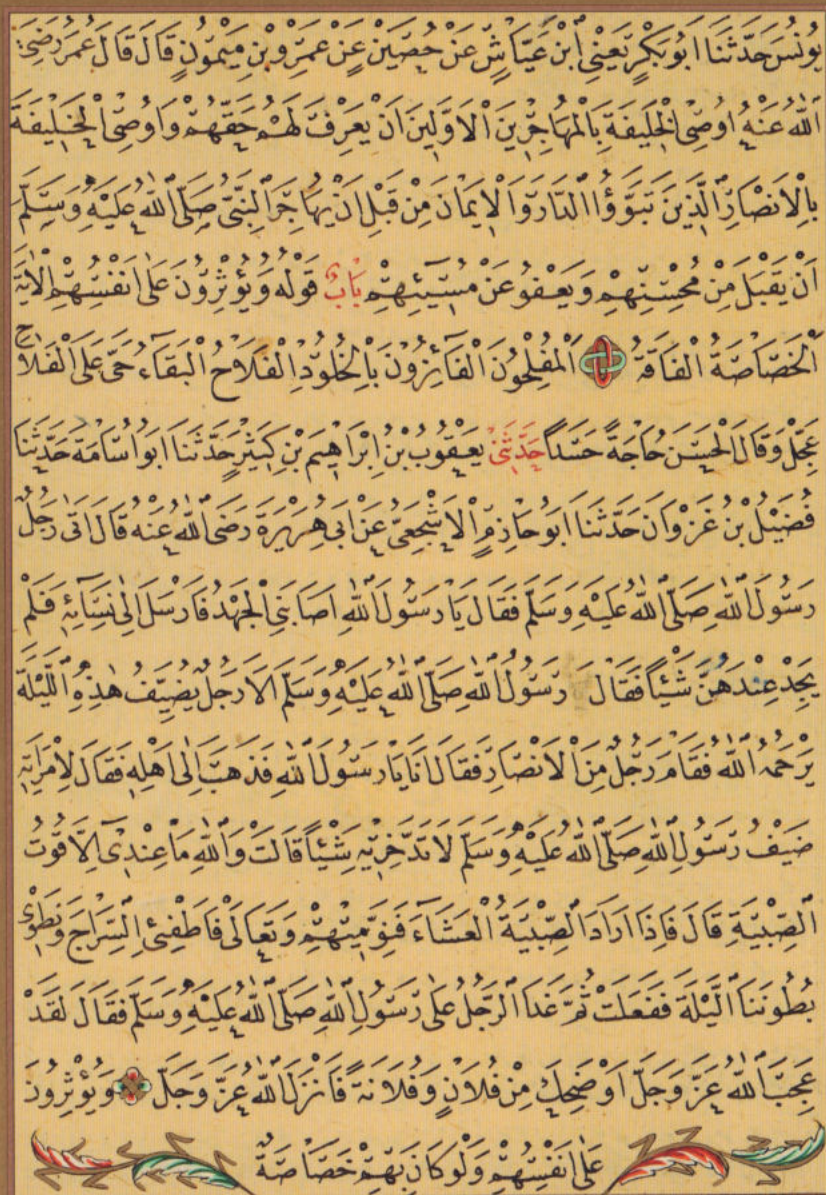 يُونُسَ حَدَّثَنَا اَبُو بَكْرٍ يَعْنِي اَبْنَ عَيَّاشٍ عَنْ حُصَيْنٍ عَنْ عَمْرِو بْنِ مَيْمُونٍ قَالَ قَالَ عُمَرُ رَضِيَ
اَللّٰهُ عَنْهُ اُوصِي الْخَلِيفَةَ بِالْمُهَاجِرِينَ الْاَوَّلِينَ اَنْ يَعْرِفَ لَهُمْ حَقَّهُمْ وَاُوصِي الْخَلِيفَةَ
بِالْاَنْصَارِ الَّذِينَ تَبَوَّؤُا الدَّارَ وَالْاِيمَانَ مِنْ قَبْلِ اَنْ يُهَاجِرَ النَّبِيُّ صَلَّى اللّٰهُ عَلَيْهِ وَسَلَّمَ
اَنْ يَقْبَلَ مِنْ مُحْسِنِهِمْ وَيَعْفُوَ عَنْ مُسِيئِهِمْ بَابُ قَوْلِهِ وَيُؤْثِرُونَ عَلٰى اَنْفُسِهِمْ الْاٰيَةَ
اَلْخَصَاصَةُ الْفَاقَةُ اَلْمُفْلِحُونَ الْفَائِزُونَ بِالْخُلُودِ الْفَلَاحُ الْبَقَاءُ حَيَّ عَلَى الْفَلَاحِ
عَجِّلْ وَقَالَ الْحَسَنُ حَاجَةً حَسَدًا حَدَّثَنِي يَعْقُوبُ بْنُ اِبْرَاهِيمَ بْنِ كَثِيرٍ حَدَّثَنَا اَبُو اُسَامَةَ حَدَّثَنَا
فُضَيْلُ بْنُ غَزْوَانَ حَدَّثَنَا اَبُو حَازِمٍ الْاَشْجَعِيُّ عَنْ اَبِي هُرَيْرَةَ رَضِيَ اللّٰهُ عَنْهُ قَالَ اَتٰى رَجُلٌ
رَسُولَ اللّٰهِ صَلَّى اللّٰهُ عَلَيْهِ وَسَلَّمَ فَقَالَ يَا رَسُولَ اللّٰهِ اَصَابَنِي الْجَهْدُ فَاَرْسَلَ اِلٰى نِسَائِهِ فَلَمْ
يَجِدْ عِنْدَهُنَّ شَيْئًا فَقَالَ رَسُولُ اللّٰهِ صَلَّى اللّٰهُ عَلَيْهِ وَسَلَّمَ اَلَا رَجُلٌ يُضَيِّفُ هٰذِهِ اللَّيْلَةَ
يَرْحَمُهُ اللّٰهُ فَقَامَ رَجُلٌ مِنَ الْاَنْصَارِ فَقَالَ اَنَا يَا رَسُولَ اللّٰهِ فَذَهَبَ اِلٰى اَهْلِهِ فَقَالَ لِامْرَاَتِهِ
ضَيْفُ رَسُولِ اللّٰهِ صَلَّى اللّٰهُ عَلَيْهِ وَسَلَّمَ لَا تَدَّخِرِيهِ شَيْئًا قَالَتْ وَاللّٰهِ مَا عِنْدِي اِلَّا قُوتُ
الصِّبْيَةِ قَالَ فَاِذَا اَرَادَ الصِّبْيَةُ الْعَشَاءَ فَنَوِّمِيهِمْ وَتَعَالَيْ فَاَطْفِئِي السِّرَاجَ وَنَطْوِي
بُطُونَنَا اللَّيْلَةَ فَفَعَلَتْ ثُمَّ غَدَا الرَّجُلُ عَلٰى رَسُولِ اللّٰهِ صَلَّى اللّٰهُ عَلَيْهِ وَسَلَّمَ فَقَالَ لَقَدْ
عَجِبَ اللّٰهُ عَزَّ وَجَلَّ اَوْ ضَحِكَ مِنْ فُلَانٍ وَفُلَانَةَ فَاَنْزَلَ اللّٰهُ عَزَّ وَجَلَّ وَيُؤْثِرُونَ
عَلٰى اَنْفُسِهِمْ وَلَوْ كَانَ بِهِمْ خَصَاصَةٌ